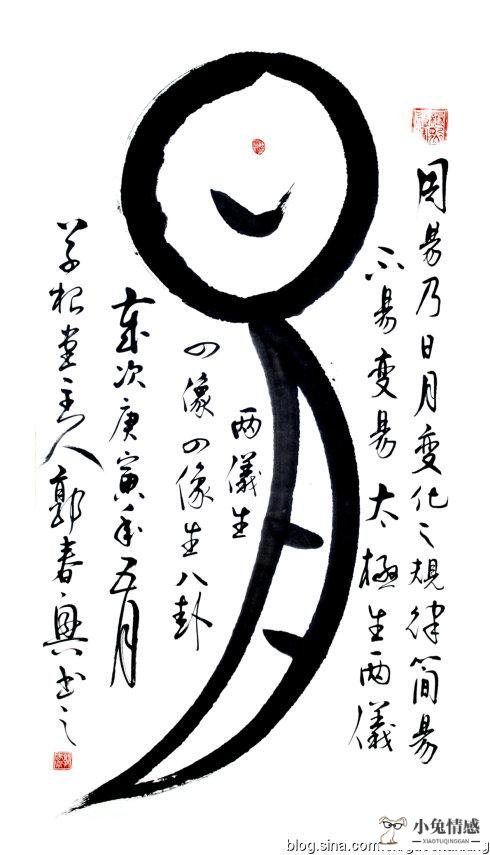 周易乃日月变化之規律简易
不易变易太極生两儀
两儀生
四像四像生八卦
歲次庚寅年五月
草根堂主人郭春興书之
小兔情感
XIAOTUQINGGAN
blog.sina.com